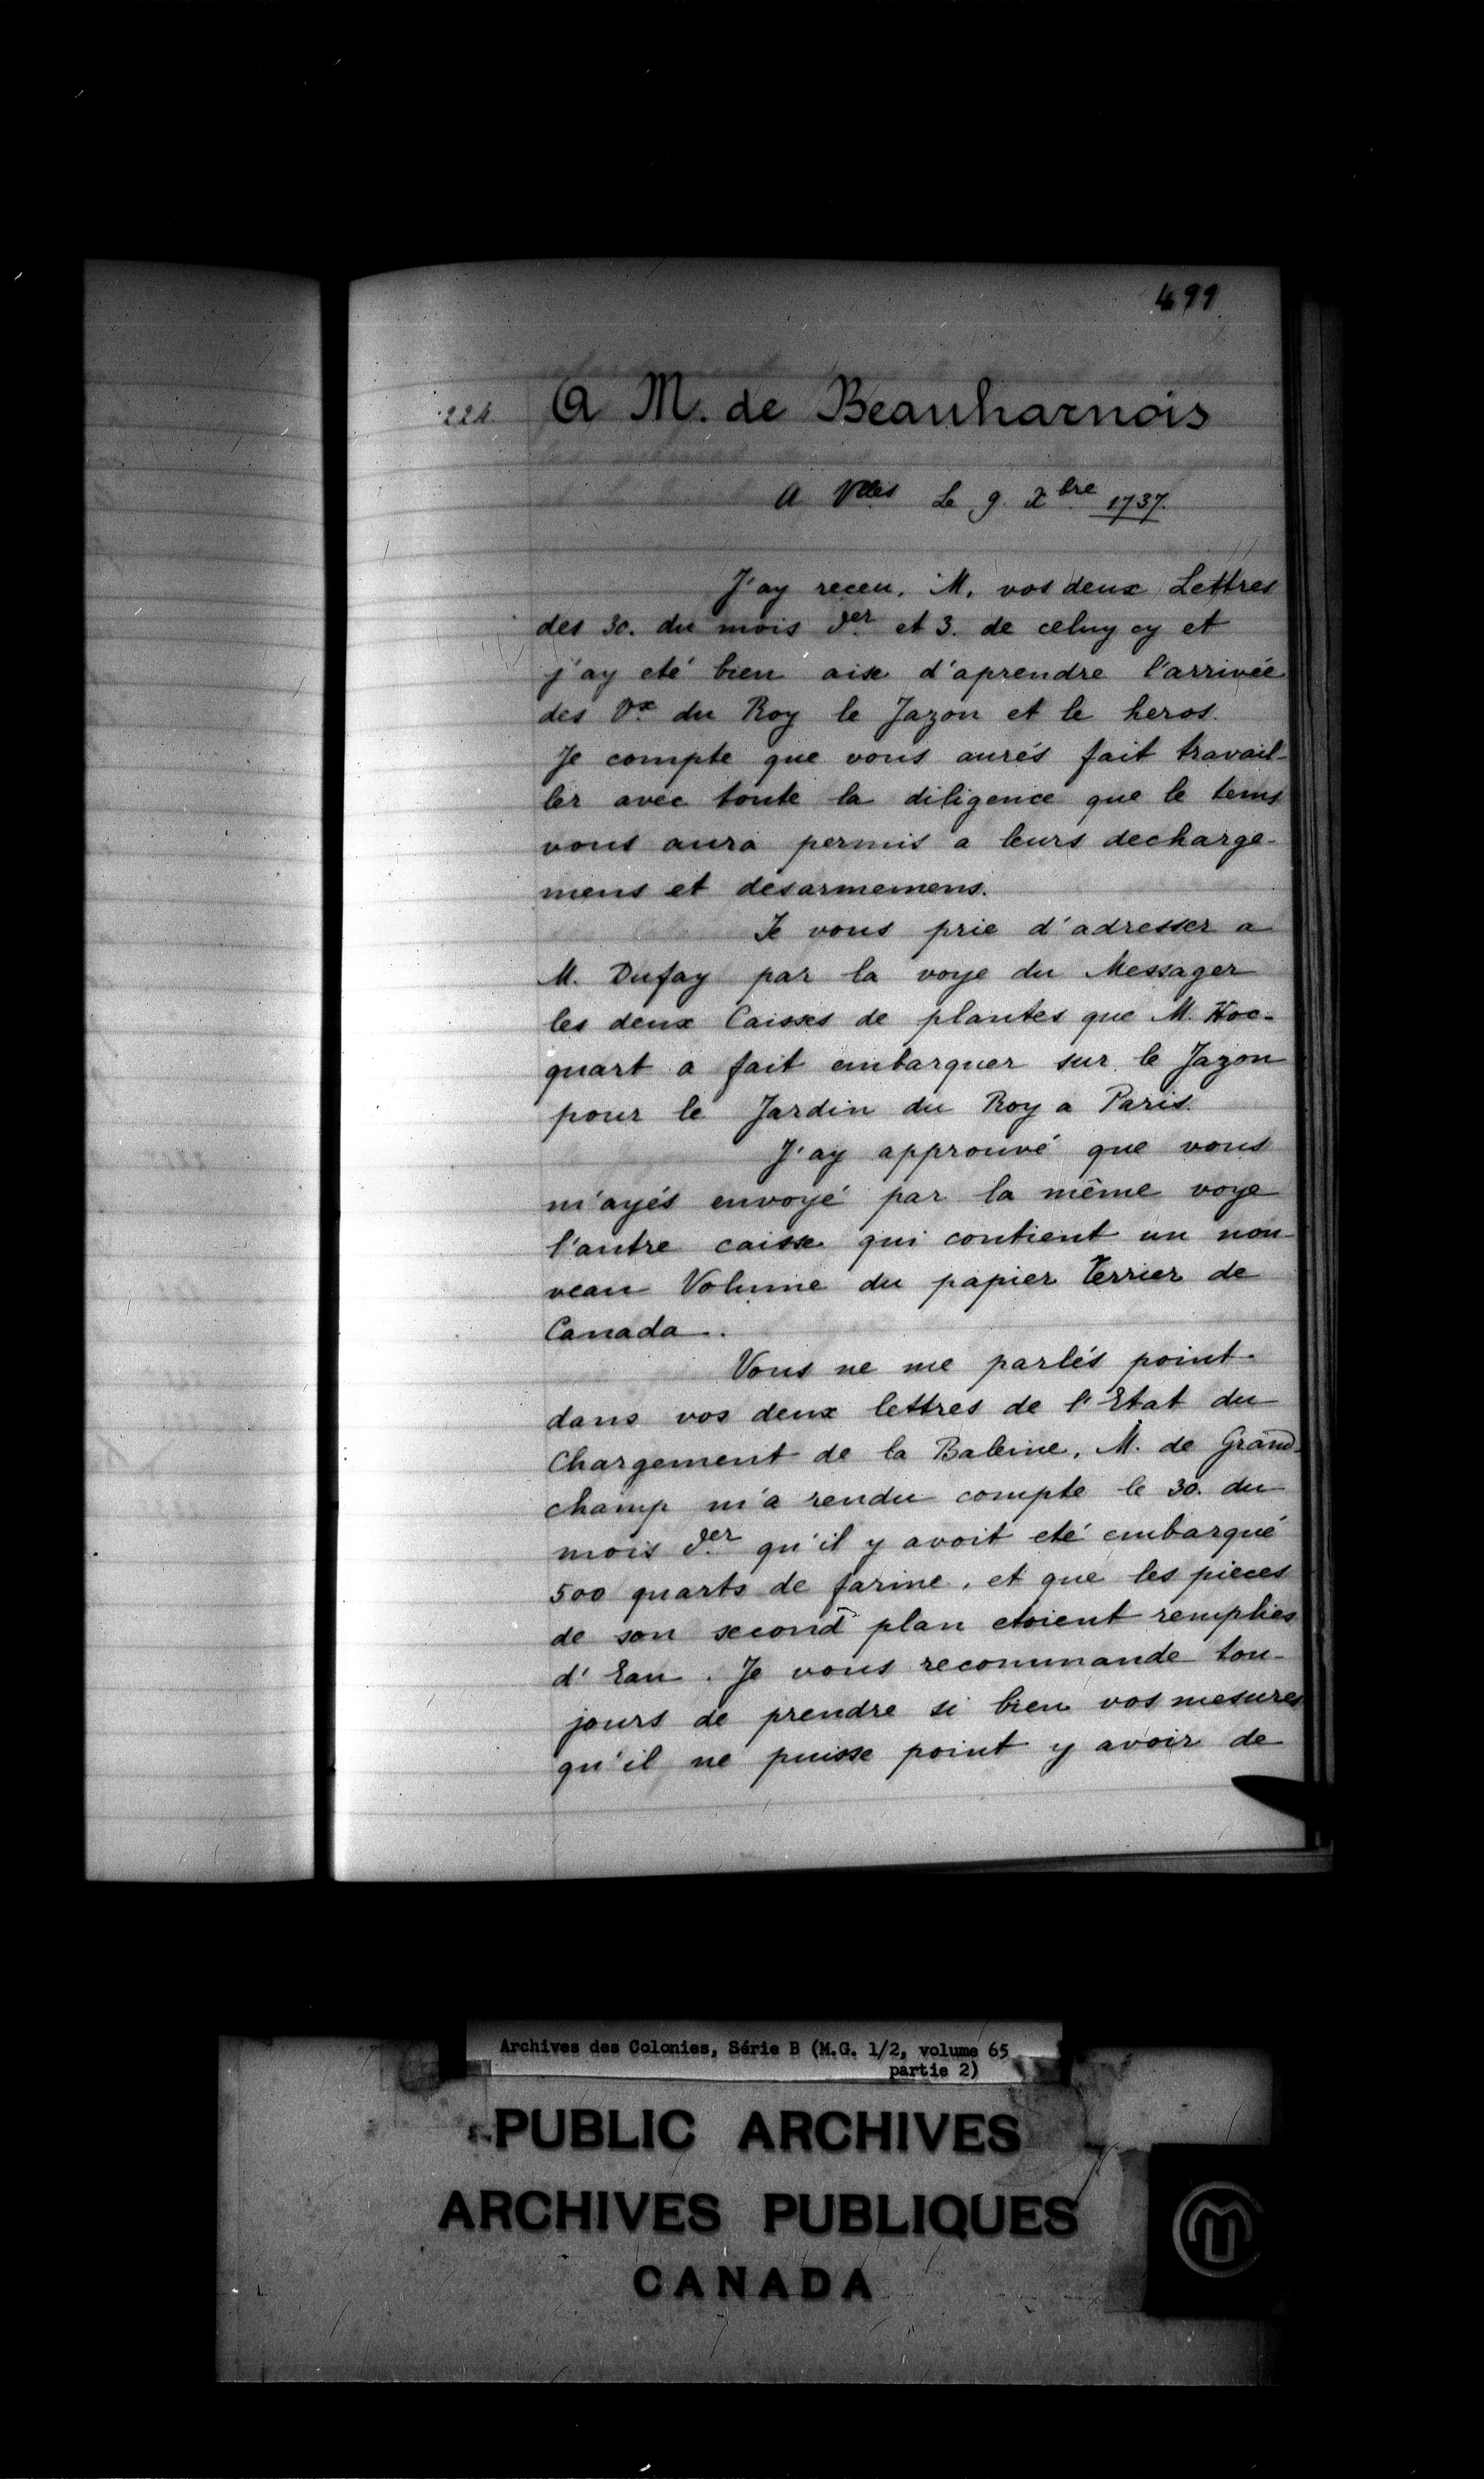 499
A M. de Beauharnois
A Vlles Le 9. Xbre 1737.
J'ay receu, M, vos deux Lettres
des 30. du mois der et 3. de celuy cy et
j'ay eté bien aise d'aprendre l'arrivée
des Vx du Roy le Jazon et le heros.
Je compte que vous aurés fait travail-
ler avec toute la diligence que le tems
vous aura permis a leurs decharge-
mens et desarmemens.
Je vous prie d'adresser a
M. Dufay par la voye du Messager
les deux Caisses de plantes que M. Hoc-
quart a fait embarquer sur le Jazon
pour le Jardin du Roy a Paris.
J'ay approuvé que vous
m'ayés envoyé par la même voye
l'autre caisse qui contient un nou-
veau Volume du papier terrier de
Canada.
Vous ne me parlés point
dans vos deux lettres de l'Etat du
Chargement de la Baleine, M. de Grand-
champ m'a rendu compte le 30. du
mois der qu'il y avoit eté embarqué
500 quarts de farine, et que les pieces
de son second plan etoient remplies
d'Eau. Je vous recommande tou-
jours de prendre si bien vos mesures
qu'il ne puisse point y avoir de
Archives des Colonies, Série B (M.G. 1/2, volume 65
partie 2)
PUBLIC ARCHIVES
ARCHIVES PUBLIQUES
CANADA